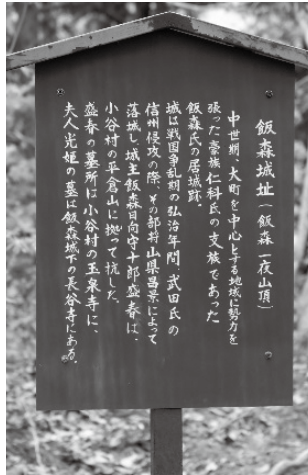 飯森城址(飯森 一夜山頂)
中世期、大町を中心とする地域に勢力を
張った豪族仁科氏の支族であった
飯森氏の居城跡。
城は戦国争乱期の弘治年間、武田氏の
信州侵攻の際、その部将山県昌景によって
落城し、城主飯森日向守十郎盛春は、
小谷村の平倉山に拠って抗した。
盛春の墓所は小谷村の玉泉寺に、
夫人光姫の墓は飯森城下の長谷寺にある。